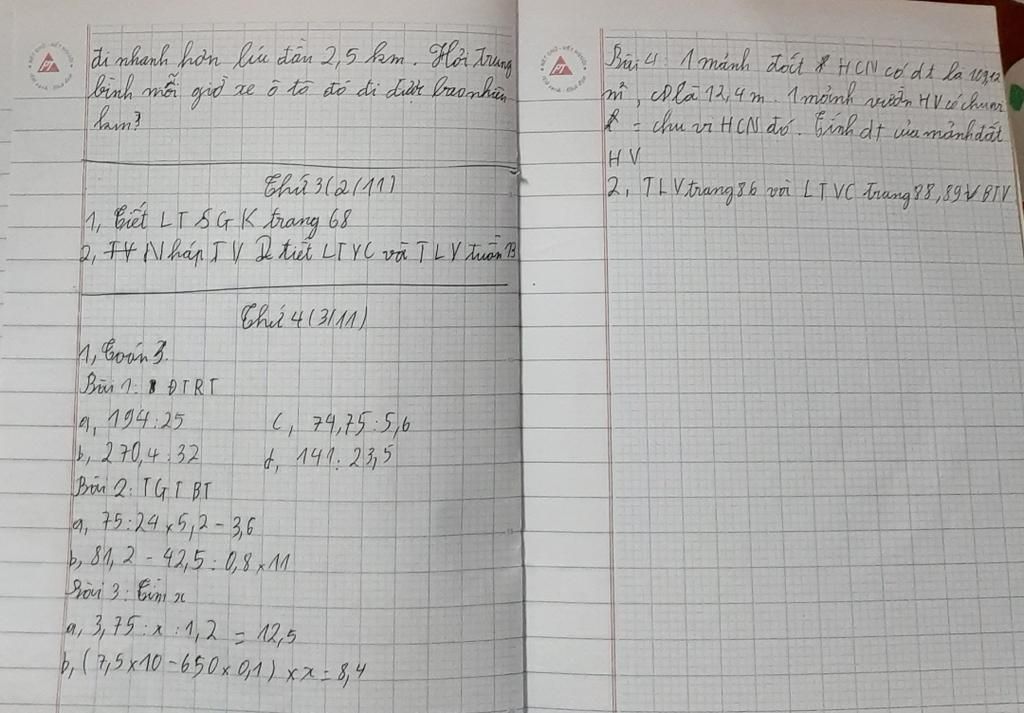 đi nhanh hơn lúc đầu 2,5 km. Hỏi trung
bình mỗi giờ xe ô tô đó đi được bao nhiêu
km?
Thứ 3(2/11)
1, Tiết LT SGK trang 68
2, Nháp TV 2 tiết LTVC và TLV tuần 13
Thứ 4(3/11)
1, Toán 3.
Bài 1: ĐTRT
a, 194:25 c, 74,75:5,6
b, 270,4:32 d, 141:23,5
Bài 2: TGTBT
a, 75:24×5,2-3,6
b, 81,2-42,5:0,8×11
Bài 3: Tìm x
a, 3,75:x:1,2=12,5
b, (7,5×10-650×0,1)×x=8,4
Bài 4: 1 mảnh đất HCN có dt là
m², CD là 12,4m. 1 mảnh vườn HV có chu vi
= chu vi HCN đó. Tính dt của mảnh đất
HV
2, TLV trang 86 với LTVC trang 88,89 VBTV
PT
PT